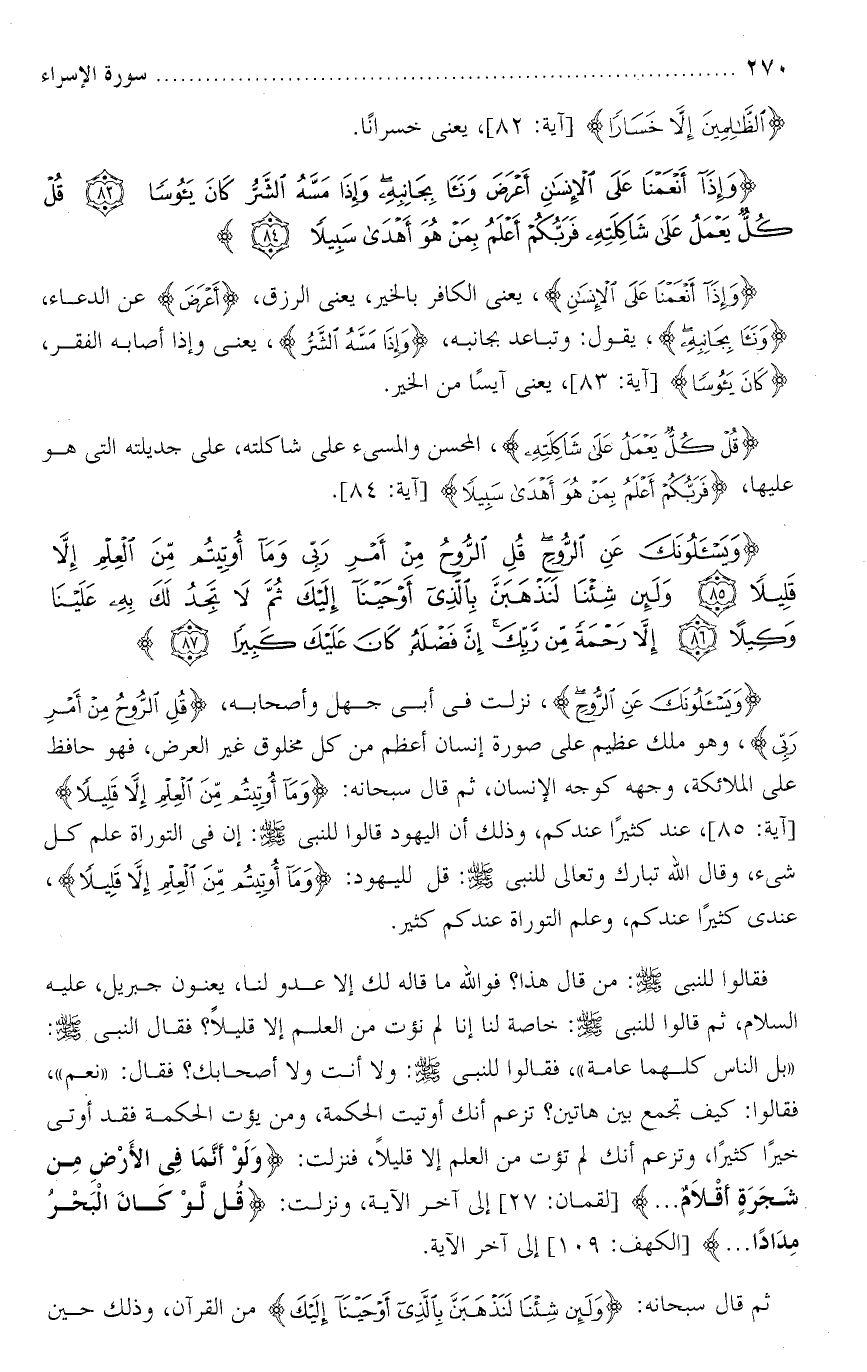 ٢٧٠ ........................................................................ سورة الإسراء
﴿ٱلظَّٰلِمِينَ إِلَّا خَسَارًا﴾ [آية: ٨٢]، يعنى خسرانًا.
﴿وَإِذَآ أَنْعَمْنَا عَلَى ٱلْإِنسَٰنِ أَعْرَضَ وَنَـَٔا بِجَانِبِهِۦۖ وَإِذَا مَسَّهُ ٱلشَّرُّ كَانَ يَـُٔوسًا ٨٣ قُلْ
كُلٌّ يَعْمَلُ عَلَىٰ شَاكِلَتِهِۦ فَرَبُّكُمْ أَعْلَمُ بِمَنْ هُوَ أَهْدَىٰ سَبِيلًا ٨٤ ﴾
﴿وَإِذَآ أَنْعَمْنَا عَلَى ٱلْإِنسَٰنِ﴾، يعنى الكافر بالخير، يعنى الرزق، ﴿أَعْرَضَ﴾ عن الدعاء،
﴿وَنَـَٔا بِجَانِبِهِۦۖ﴾، يقول: وتباعد بجانبه، ﴿وَإِذَا مَسَّهُ ٱلشَّرُّ﴾، يعنى وإذا أصابه الفقر،
﴿كَانَ يَـُٔوسًا﴾ [آية: ٨٣]، يعنى آيسًا من الخير.
﴿قُلْ كُلٌّ يَعْمَلُ عَلَىٰ شَاكِلَتِهِۦ﴾، المحسن والمسىء على شاكلته، على جديلته التى هو
عليها، ﴿فَرَبُّكُمْ أَعْلَمُ بِمَنْ هُوَ أَهْدَىٰ سَبِيلًا﴾ [آية: ٨٤].
﴿وَيَسْـَٔلُونَكَ عَنِ ٱلرُّوحِۖ قُلِ ٱلرُّوحُ مِنْ أَمْرِ رَبِّى وَمَآ أُوتِيتُم مِّنَ ٱلْعِلْمِ إِلَّا
قَلِيلًا ٨٥ وَلَئِن شِئْنَا لَنَذْهَبَنَّ بِٱلَّذِىٓ أَوْحَيْنَآ إِلَيْكَ ثُمَّ لَا تَجِدُ لَكَ بِهِۦ عَلَيْنَا
وَكِيلًا ٨٦ إِلَّا رَحْمَةً مِّن رَّبِّكَۚ إِنَّ فَضْلَهُۥ كَانَ عَلَيْكَ كَبِيرًا ٨٧ ﴾
﴿وَيَسْـَٔلُونَكَ عَنِ ٱلرُّوحِۖ﴾، نزلت فى أبى جهل وأصحابه، ﴿قُلِ ٱلرُّوحُ مِنْ أَمْرِ
رَبِّى﴾، وهو ملك عظيم على صورة إنسان أعظم من كل مخلوق غير العرض، فهو حافظ
على الملائكة، وجهه كوجه الإنسان، ثم قال سبحانه: ﴿وَمَآ أُوتِيتُم مِّنَ ٱلْعِلْمِ إِلَّا قَلِيلًا﴾
[آية: ٨٥]، عند كثيرًا عندكم، وذلك أن اليهود قالوا للنبى ﷺ: إن فى التوراة علم كل
شىء، وقال الله تبارك وتعالى للنبى ﷺ: قل لليهود: ﴿وَمَآ أُوتِيتُم مِّنَ ٱلْعِلْمِ إِلَّا قَلِيلًا﴾،
عندى كثيرًا عندكم، وعلم التوراة عندكم كثير.
فقالوا للنبى ﷺ: من قال هذا؟ فوالله ما قاله لك إلا عدو لنا، يعنون جبريل، عليه
السلام، ثم قالوا للنبى ﷺ: خاصة لنا إنا لم نؤت من العلم إلا قليلاً؟ فقال النبى ﷺ:
«بل الناس كلهما عامة»، فقالوا للنبى ﷺ: ولا أنت ولا أصحابك؟ فقال: «نعم»،
فقالوا: كيف تجمع بين هاتين؟ تزعم أنك أوتيت الحكمة، ومن يؤت الحكمة فقد أوتى
خيرًا كثيرًا، وتزعم أنك لم تؤت من العلم إلا قليلاً، فنزلت: ﴿وَلَوْ أَنَّمَا فِى الأَرْضِ مِن
شَجَرَةٍ أَقْلاَمٌ...﴾ [لقمان: ٢٧] إلى آخر الآية، ونزلت: ﴿قُل لَّوْ كَانَ الْبَحْرُ
مِدَادًا...﴾ [الكهف: ١٠٩] إلى آخر الآية.
ثم قال سبحانه: ﴿وَلَئِن شِئْنَا لَنَذْهَبَنَّ بِٱلَّذِىٓ أَوْحَيْنَآ إِلَيْكَ﴾ من القرآن، وذلك حين